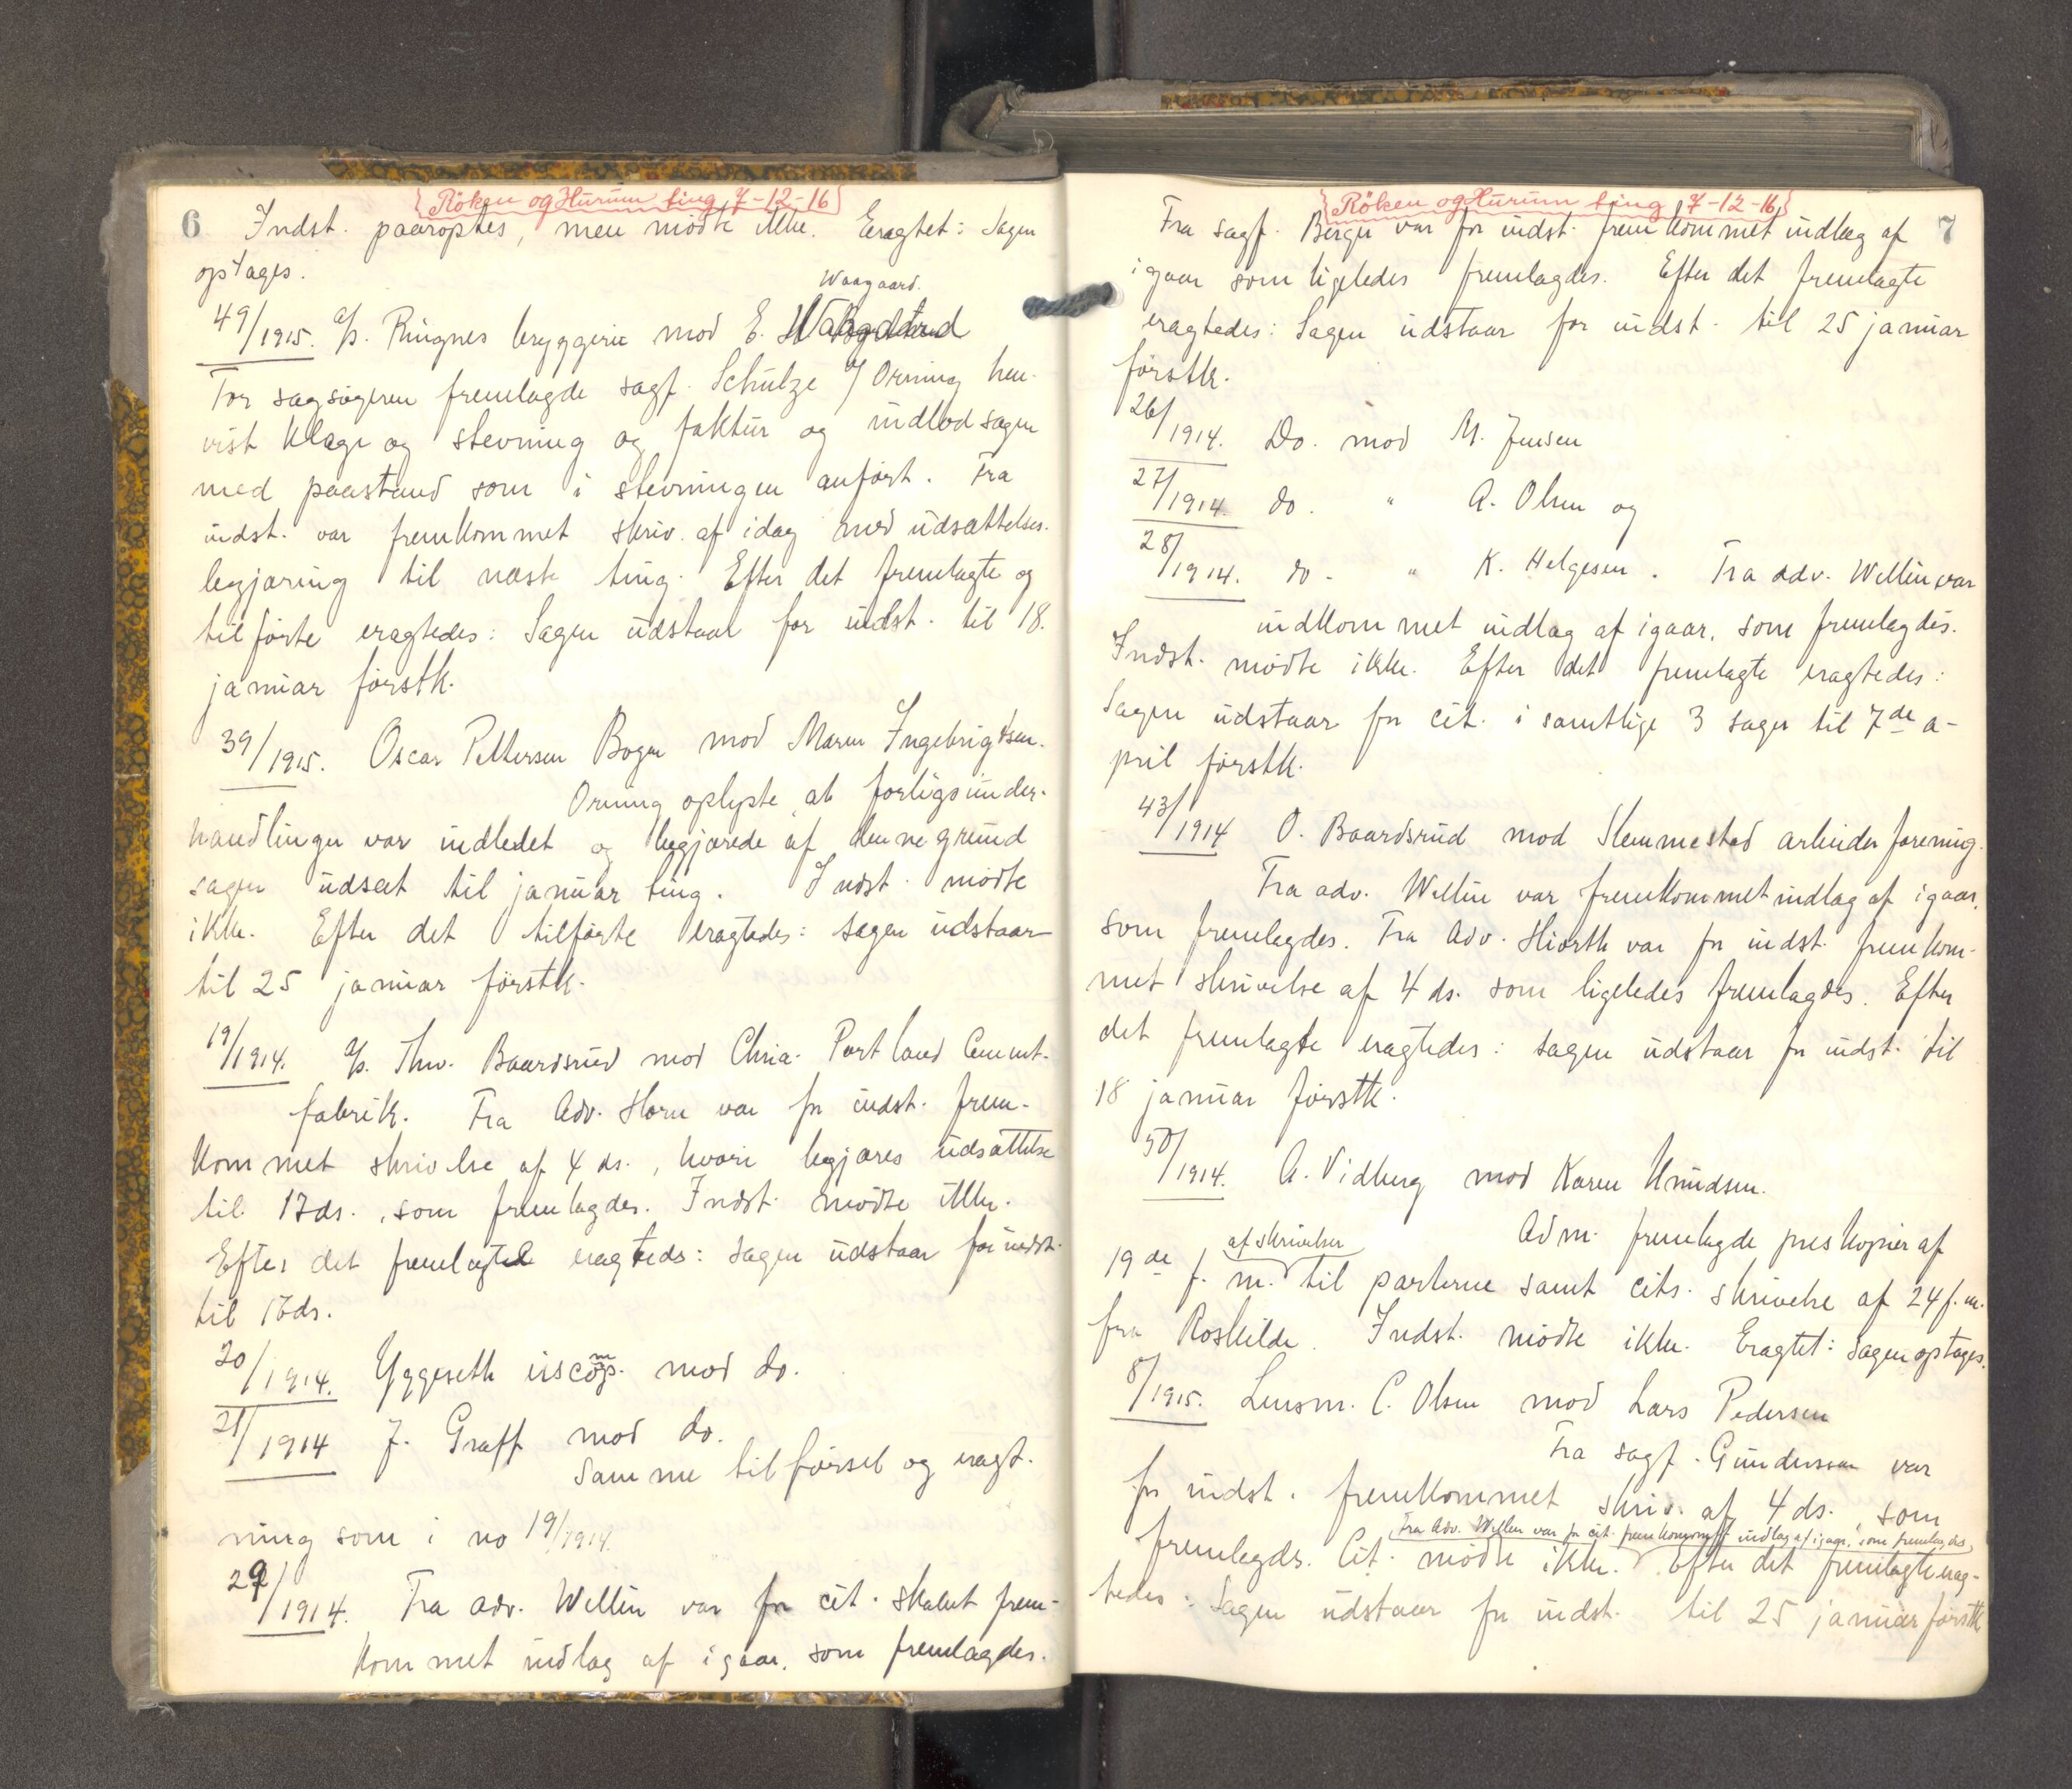 Röken og Hurum ting 7-12-16
6
Indst. paaroptes, men mødte ikke. Eragtet: Sagen
optages.
Waagaard.
49/1915. A/s. Ringnes bryggerie mod E.
For sagsøgeren fremlagde sagf. Schulze v/ Orning hen-
vist klage og stevning og faktur og indlod sagen
med paastand som i stevningen anført. Fra
indst. var fremkommet skriv. af idag med udsættelses-
begjæring til næste ting. Efter det fremlagte og
tilførte eragtedes: Sagen udstaar for indst. til 18.
januar førstk.
39/1915. Oscar Pettersen Bogen mod Maren Ingebrigtsen.
Orning oplyste at forligsunder-
handlinger var indledet og begjærede af denne grund
sagen udsæt til januar ting. Indst. mødte
ikke. Efter det tilførte eragtedes: sagen udstaar
til 25 januar førstk.
19/1914. A/s. Thv. Baardsrud mod Chria. Portland Cement-
fabrik. Fra Adv. Horn var for indst. frem-
kommet skrivelse af 4 ds., hvori begjæres udsættelse
til 17ds., som fremlagdes. Indst. mødte ikke.
Efter det fremlagte eragtedes: sagen udstaar for indst.
til 17ds.
20/1914. Yggeseth iscomp. mod do.
21/1914 J. Graff mod do.
Samme tilførsel og eragt-
ning som i no 19/1914.
29/1914. Fra adv. Wellin var for cit. Skalut frem-
kommet indlæg af igaar, som fremlagdes.
Röken og Hurum ting 7-12-16
7
Fra sagf. Berger var for indst. fremkommet indlæg af
igaar som ligeledes fremlagdes. Efter det fremlagte
eragtedes: Sagen udstaar for indst. til 25 januar
førstk.
26/1914. Do. mod M. Jensen
27/1914. do. " A. Olsen og
28/1914. do. " K. Helgesen. Fra adv. Wellin var
indkommet indlæg af igaar, som fremlagdes.
Indst. mødte ikke. Efter det fremlagte eragtedes:
Sagen udstaar for cit. i samtlige 3 sager til 7de a-
pril førstk.
43/1914 O. Baardsrud mod Slemmestad arbeiderforening.
Fra adv. Wellin var fremkommet indlæg af igaar,
som fremlagdes. Fra Adv. Hiorth var for indst. fremkom-
met skrivelse af 4 ds. som ligeledes fremlagdes. Efter
det fremlagte eragtedes: sagen udstaar for indst. til
18 januar førstk.
50/1914. A. Vidberg mod Karen Knudsen.
Adm. fremlagde preskopier af
af skrivelser
19de f. m. til parterne samt cits. skrivelse af 24 f.m.
fra Roskilde. Indst. mødte ikke. Eragtet: Sagen optages.
8/1915. Lensm. C. Olsen mod Lars Pedersen
Fra sagf. Gundersen var
for indst. fremkommet skriv. af 4 ds., som
Fra Adv. Wellin var for cit. fremkommet indlæg af igaar, som fremlagdes,
fremlagdes. Cit. mødte ikke. Efter det fremlagte erag-
tedes: Sagen udstaar for indst. til 25 januar førstk